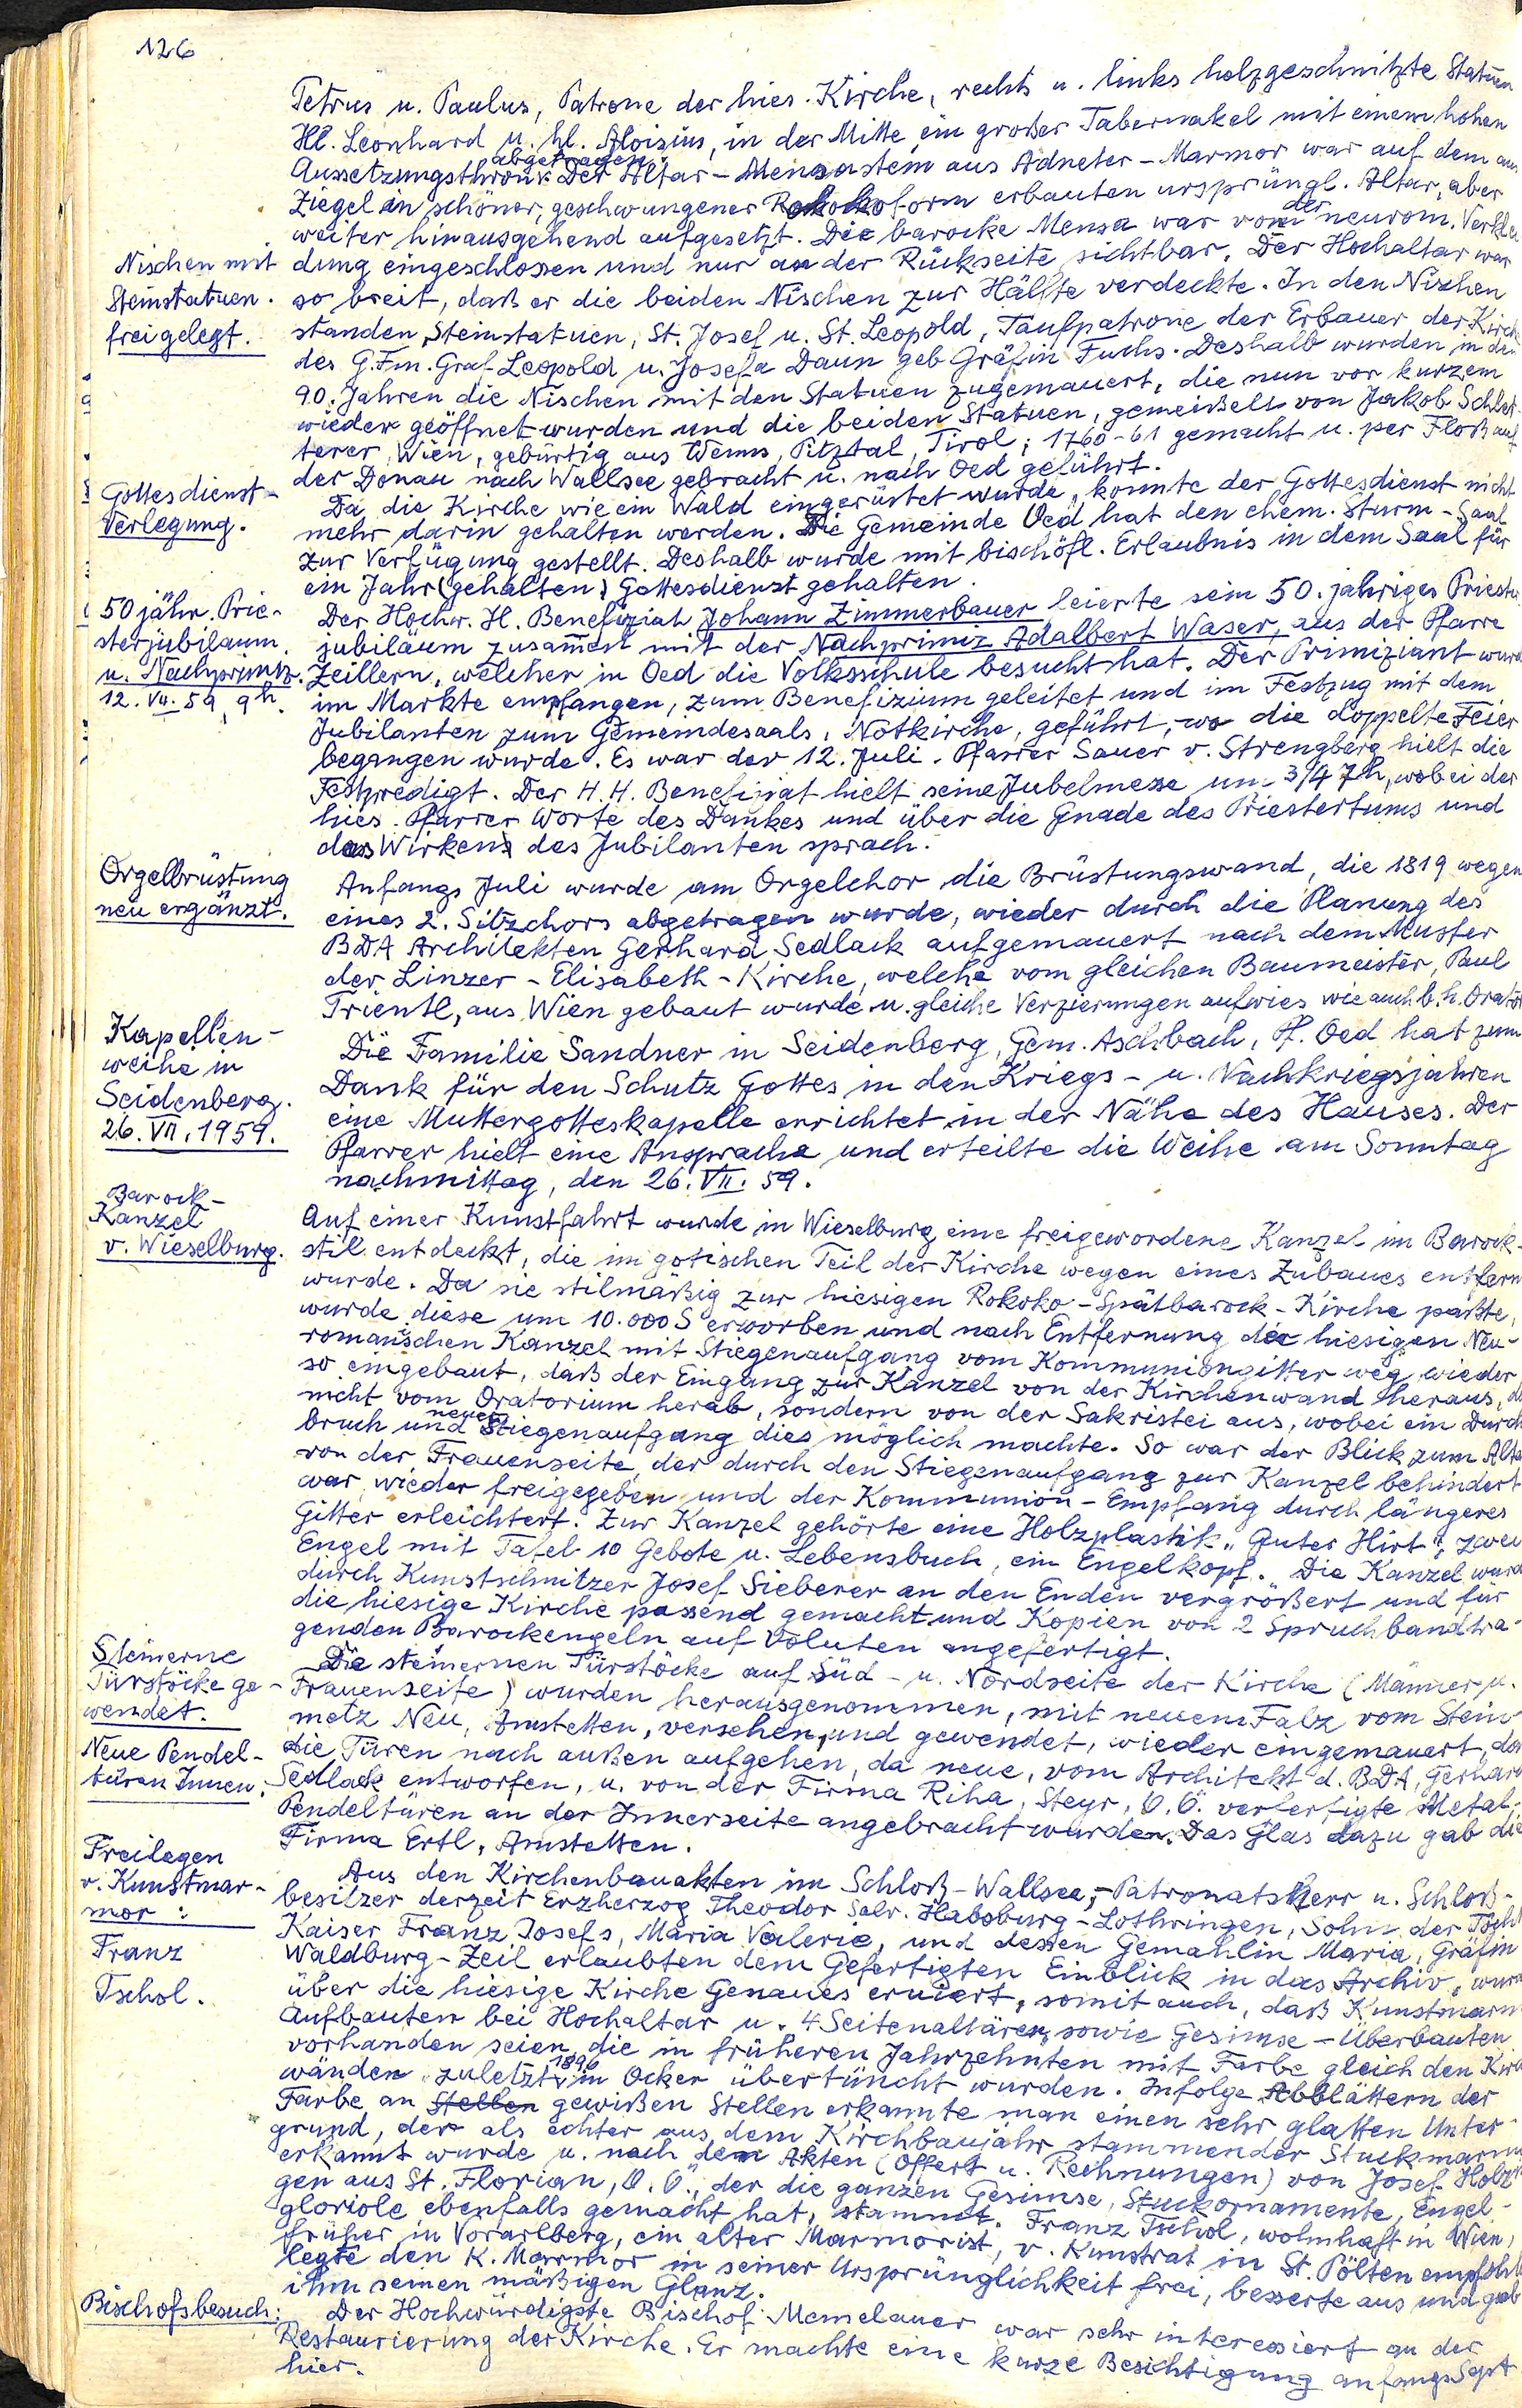 126
Petrus u. Paulus, Patrone der hies. Kirche, rechts u. links holzgeschnitzte Statuen
Hl. Leonhard u. hl. Aloisius, in der Mitte ein großer Tabernakel mit einem hohen
abgetragen.
Aussetzungsthron. Der Altar-Mensastein aus Adneter-Marmor war auf dem aus
Ziegel in schöner, geschwungener Rokokoform erbauten ursprüngl. Altar, aber
weiter hinausgehend aufgesetzt. Die barocke Mensa war von der neurom. Verklei
Nischen mit
Steinstatuen.
freigelegt.
dung eingeschlossen und nur an der Rückseite sichtbar. Der Hochaltar war
so breit, daß er die beiden Nischen zur Hälfte verdeckte. In den Nischen
standen Steinstatuen, St. Josef u. St. Leopold, Taufpatrone der Erbauer der Kirche
des G.Fm. Graf Leopold u. Josefa Daun geb Gräfin Fuchs. Deshalb wurden in den
90. Jahren die Nischen mit den Statuen zugemauert, die nun vor kurzem
wieder geöffnet wurden und die beiden Statuen, gemeißelt von Jakob Schlet-
terer, Wien, gebürtig aus Wenns, Pitztal, Tirol; 1760-61 gemacht u. per Floß auf
der Donau nach Wallsee gebracht u. nach Oed geführt.
Gottesdienst-
Verlegung.
Da die Kirche wie ein Wald eingerüstet wurde, konnte der Gottesdienst nicht
mehr darin gehalten werden. Die Gemeinde Oed hat den ehem. Sturm-Saal
zur Verfügung gestellt. Deshalb wurde mit bischöfl. Erlaubnis in dem Saal für
ein Jahr (gehalten) Gottesdienst gehalten.
50 jähr. Prie-
sterjubiläum
u. Nachprimiz.
12. VII. 59, 9h.
Der Hochw. H. Benefiziat Johann Zimmerbauer feierte sein 50. jähriges Priester
jubiläum zusammen mit der Nachprimiz Adalbert Waser, aus der Pfarre
Zeillern, welcher in Oed die Volksschule besucht hat. Der Primiziant wurde
im Markte empfangen, zum Benefizium geleitet und im Festzug mit dem
Jubilanten zum Gemeindesaals, Notkirche, geführt, wo die doppelte Feier
begangen wurde. Es war der 12. Juli. Pfarrer Sauer v. Strengberg hielt die
Festpredigt. Der H.H. Benefiziat hielt seine Jubelmesse um 3/4 7h, wobei der
hies. Pfarrer Worte des Dankes und über die Gnade des Priestertums und
das Wirken des Jubilanten sprach.
Orgelbrüstung
neu ergänzt.
Anfangs Juli wurde am Orgelchor die Brüstungswand, die 1819 wegen
eines 2. Sitzchors abgetragen wurde, wieder durch die Planung des
BDA Architekten Gerhard Sedlack aufgemauert nach dem Muster
der Linzer-Elisabeth-Kirche, welche vom gleichen Baumeister, Paul
Trientl, aus Wien gebaut wurde u. gleiche Verzierungen aufwies wie auch b. h. Orator
Kapellen-
weihe in
Seidenberg.
26. VII. 1959.
Die Familie Sandner in Seidenberg, Gem. Aschbach, Pf. Oed hat zum
Dank für den Schutz Gottes in den Kriegs- u. Nachkriegsjahren
eine Muttergotteskapelle errichtet in der Nähe des Hauses. Der
Pfarrer hielt eine Ansprache und erteilte die Weihe am Sonntag
nachmittag, den 26. VII. 59.
Barock-
Kanzel
v. Wieselburg.
Auf einer Kunstfahrt wurde in Wieselburg eine freigewordene Kanzel im Barock-
stil entdeckt, die im gotischen Teil der Kirche wegen eines Zubaues entfern
wurde. Da sie stilmäßig zur hiesigen Rokoko-Spätbarock-Kirche paßte,
wurde diese um 10.000 S erworben und nach Entfernung der hiesigen Neu-
romanischen Kanzel mit Stiegenaufgang vom Kommuniongitter weg wieder
so eingebaut, daß der Eingang zur Kanzel von der Kirchenwand heraus,
nicht vom Oratorium herab, sondern von der Sakristei aus, wobei ein Durch
bruch und neuer Stiegenaufgang dies möglich machte. So war der Blick zum Alta
von der Frauenseite, der durch den Stiegenaufgang zur Kanzel behindert
war, wieder freigegeben und der Kommunion-Empfang durch längeres
Gitter erleichtert. Zur Kanzel gehörte eine Holzplastik "Guter Hirt", zwei
Engel mit Tafel 10 Gebote u. Lebensbuch, ein Engelkopf. Die Kanzel wurd
durch Kunstschnitzer Josef Sieberer an den Enden vergrößert und für
die hiesige Kirche passend gemacht und Kopien von 2 Spruchbandtra-
genden Barockengeln auf Voluten angefertigt.
Steinerne
Türstöcke ge-
wendet.
Neue Pendel-
türen Innen.
Die steinernen Türstöcke auf Süd- u. Nordseite der Kirche (Männer u.
Frauenseite) wurden herausgenommen, mit neuem Falz vom Stein-
metz Neu, Amstetten, versehen, und gewendet, wieder eingemauert,
die Türen nach außen aufgehen, da neue, vom Architekt d. BDA, Gerhard
Sedlack entworfen, u. von der Firma Riha, Steyr, O.Ö. verfertigte Metal-
Pendeltüren an der Innerseite angebracht wurden. Das Glas dazu gab die
Firma Ertl, Amstetten.
Freilegen
v. Kunstmar-
mor:
Franz
Tschol.
Aus den Kirchenbauakten im Schloß-Wallsee, - Patronatsherr u. Schloß-
besitzer derzeit Erzherzog Theodor Salv. Habsburg-Lothringen, Sohn der Tocht
Kaiser Franz Josefs, Maria Valerie, und dessen Gemahlin Maria, Gräfin
Waldburg-Zeil erlaubten dem Gefertigten Einblick in das Archiv, wurd
über die hiesige Kirche Genaues eruiert, somit auch, daß Kunstmarm
Aufbauten bei Hochaltar u. 4 Seitenaltären, sowie Gesimse-Überbauten
vorhanden seien, die in früheren Jahrzehnten mit Farbe gleich den Kirch
wänden zuletzt 1896 in Ocker übertüncht wurden. Infolge Abblättern der
Farbe an Stellen gewißen Stellen erkannte man einen sehr glatten Unter-
grund, der als echter aus dem Kirchbaujahr stammender Stuckmarmor
erkannt wurde u. nach den Akten (Offert u. Rechnungen) von Josef Holz
gen aus St. Florian, O.Ö., der die ganzen Gesimse, Stuckornamente, Engel-
gloriole ebenfalls gemacht hat, stammt. Franz Tschol, wohnhaft in Wien,
früher in Vorarlberg, ein alter Marmorist, v. Kunstrat in St. Pölten empfohl
legte den K. Marmor in seiner Ursprünglichkeit frei, besserte aus und gab
ihm seinen mäßigen Glanz.
Bischofsbesuch:
Der Hochwürdigste Bischof Memelauer war sehr interessiert an der
Restaurierung der Kirche. Er machte eine kurze Besichtigung anfangs Sept.
hier.